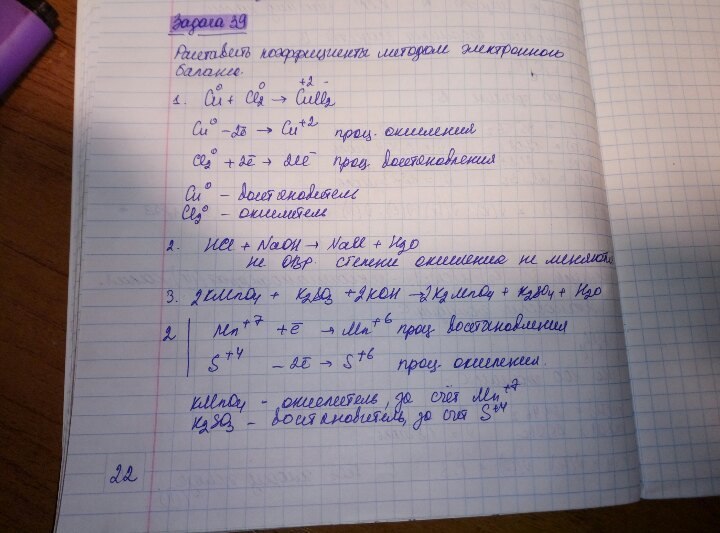 Задача 39
Расставить коэффициенты методом электронного
баланс.
1. Cu⁰ + Cl₂⁰ → Cu⁺²Cl₂⁻
Cu⁰ - 2ē → Cu⁺² проц. окисления
Cl₂⁰ + 2ē → 2Cl⁻ проц. восстановления
Cu⁰ - восстановитель
Cl₂⁰ - окислитель
2. HCl + NaOH → NaCl + H₂O
не ОВР. степени окисление не меняются
3. 2KMnO₄ + K₂SO₃ + 2KOH → 2K₂MnO₄ + K₂SO₄ + H₂O
2 | Mn⁺⁷ + ē → Mn⁺⁶ проц. восстановления
S⁺⁴ - 2ē → S⁺⁶ проц. окисления.
KMnO₄ - окислитель, за счёт Mn⁺⁷
K₂SO₃ - восстановитель, за счёт S⁺⁴
22